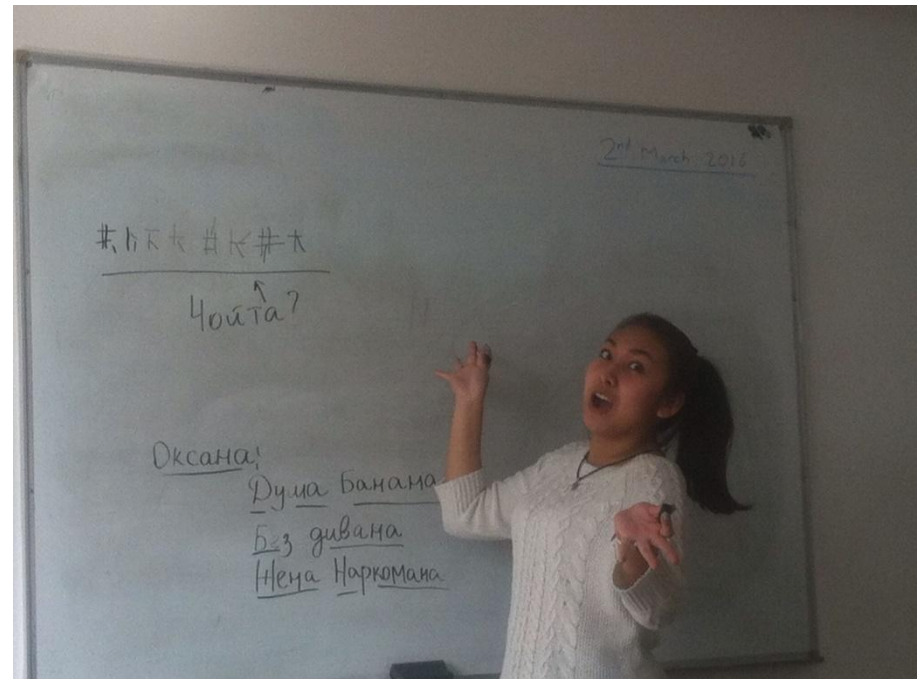 2nd March 2016
Чойта?
Оксана:
Дума Банана
Без дивана
Жена Наркомана